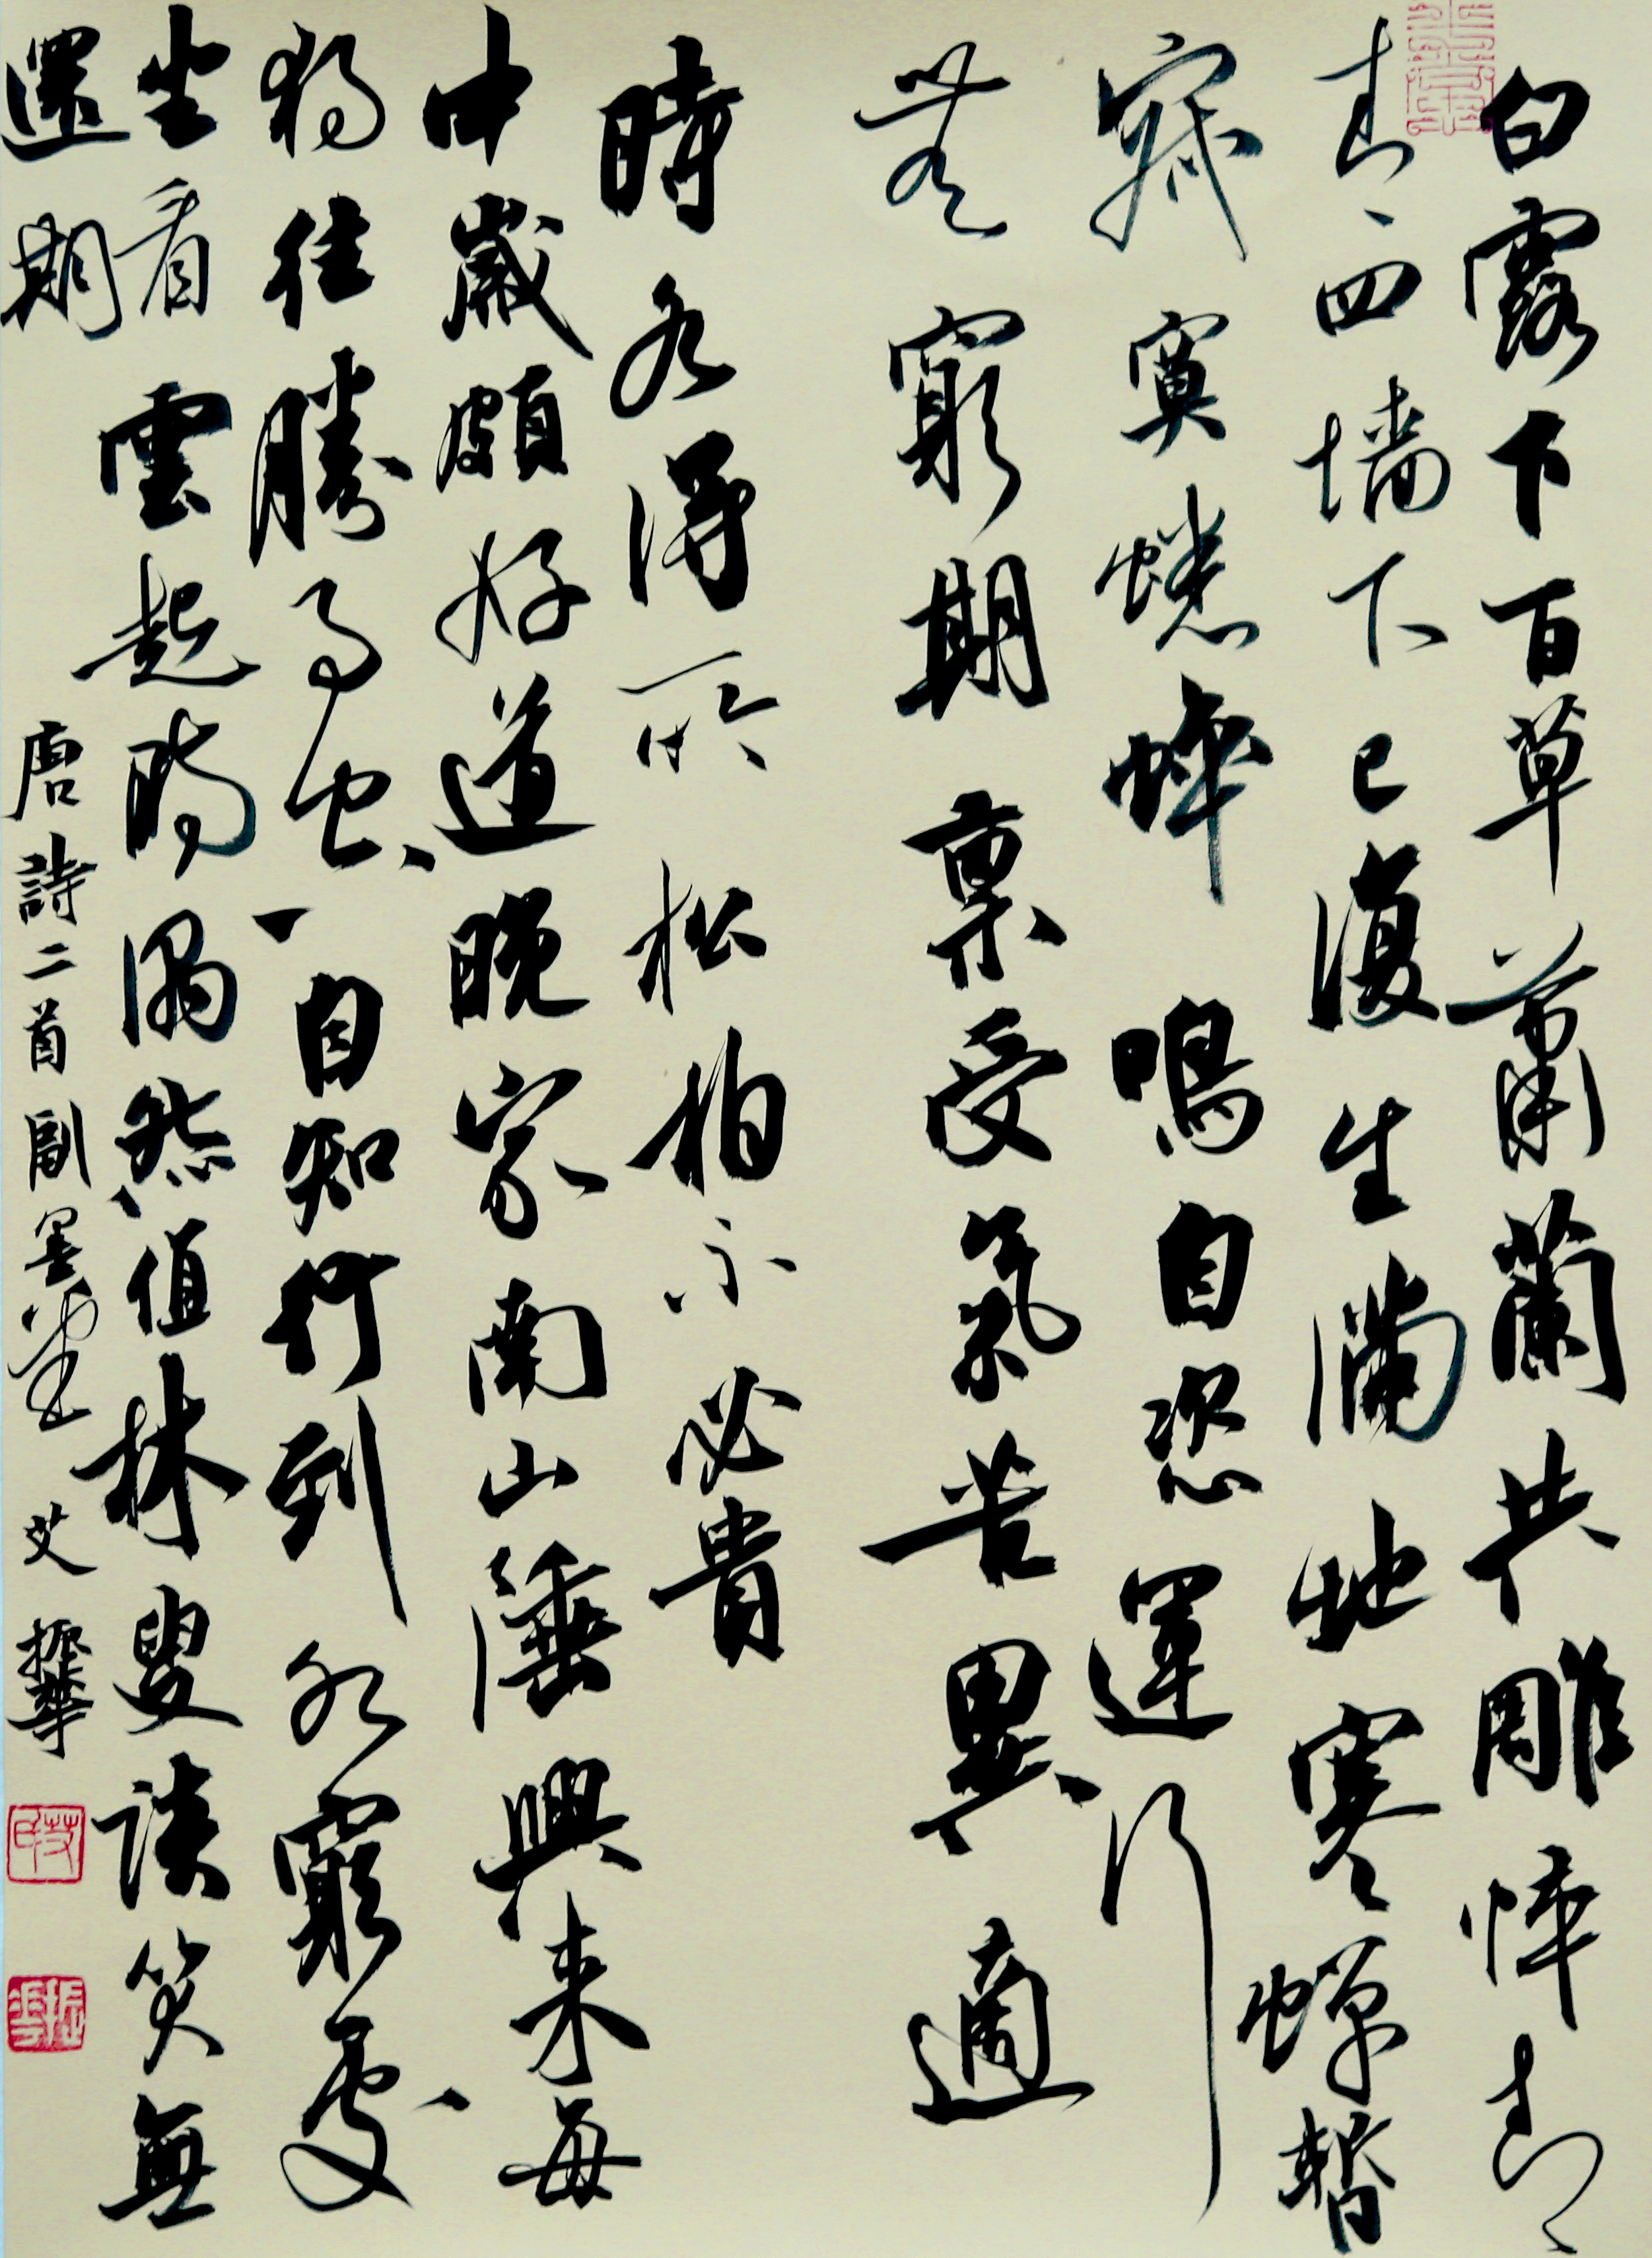 白露下百草蕭蘭共雕悴青
青四墙下已復生滿地寒蟬暫
寂寞蟋蟀鳴自恣運行
無窮期稟受氣苦異適
時各得所松柏不必貴
中歲頗好道晚家南山陲興来每
獨往勝事空自知行到水窮處
坐看雲起時偶然值林叟談笑無
還期
唐詩二首 墨堂 艾振華